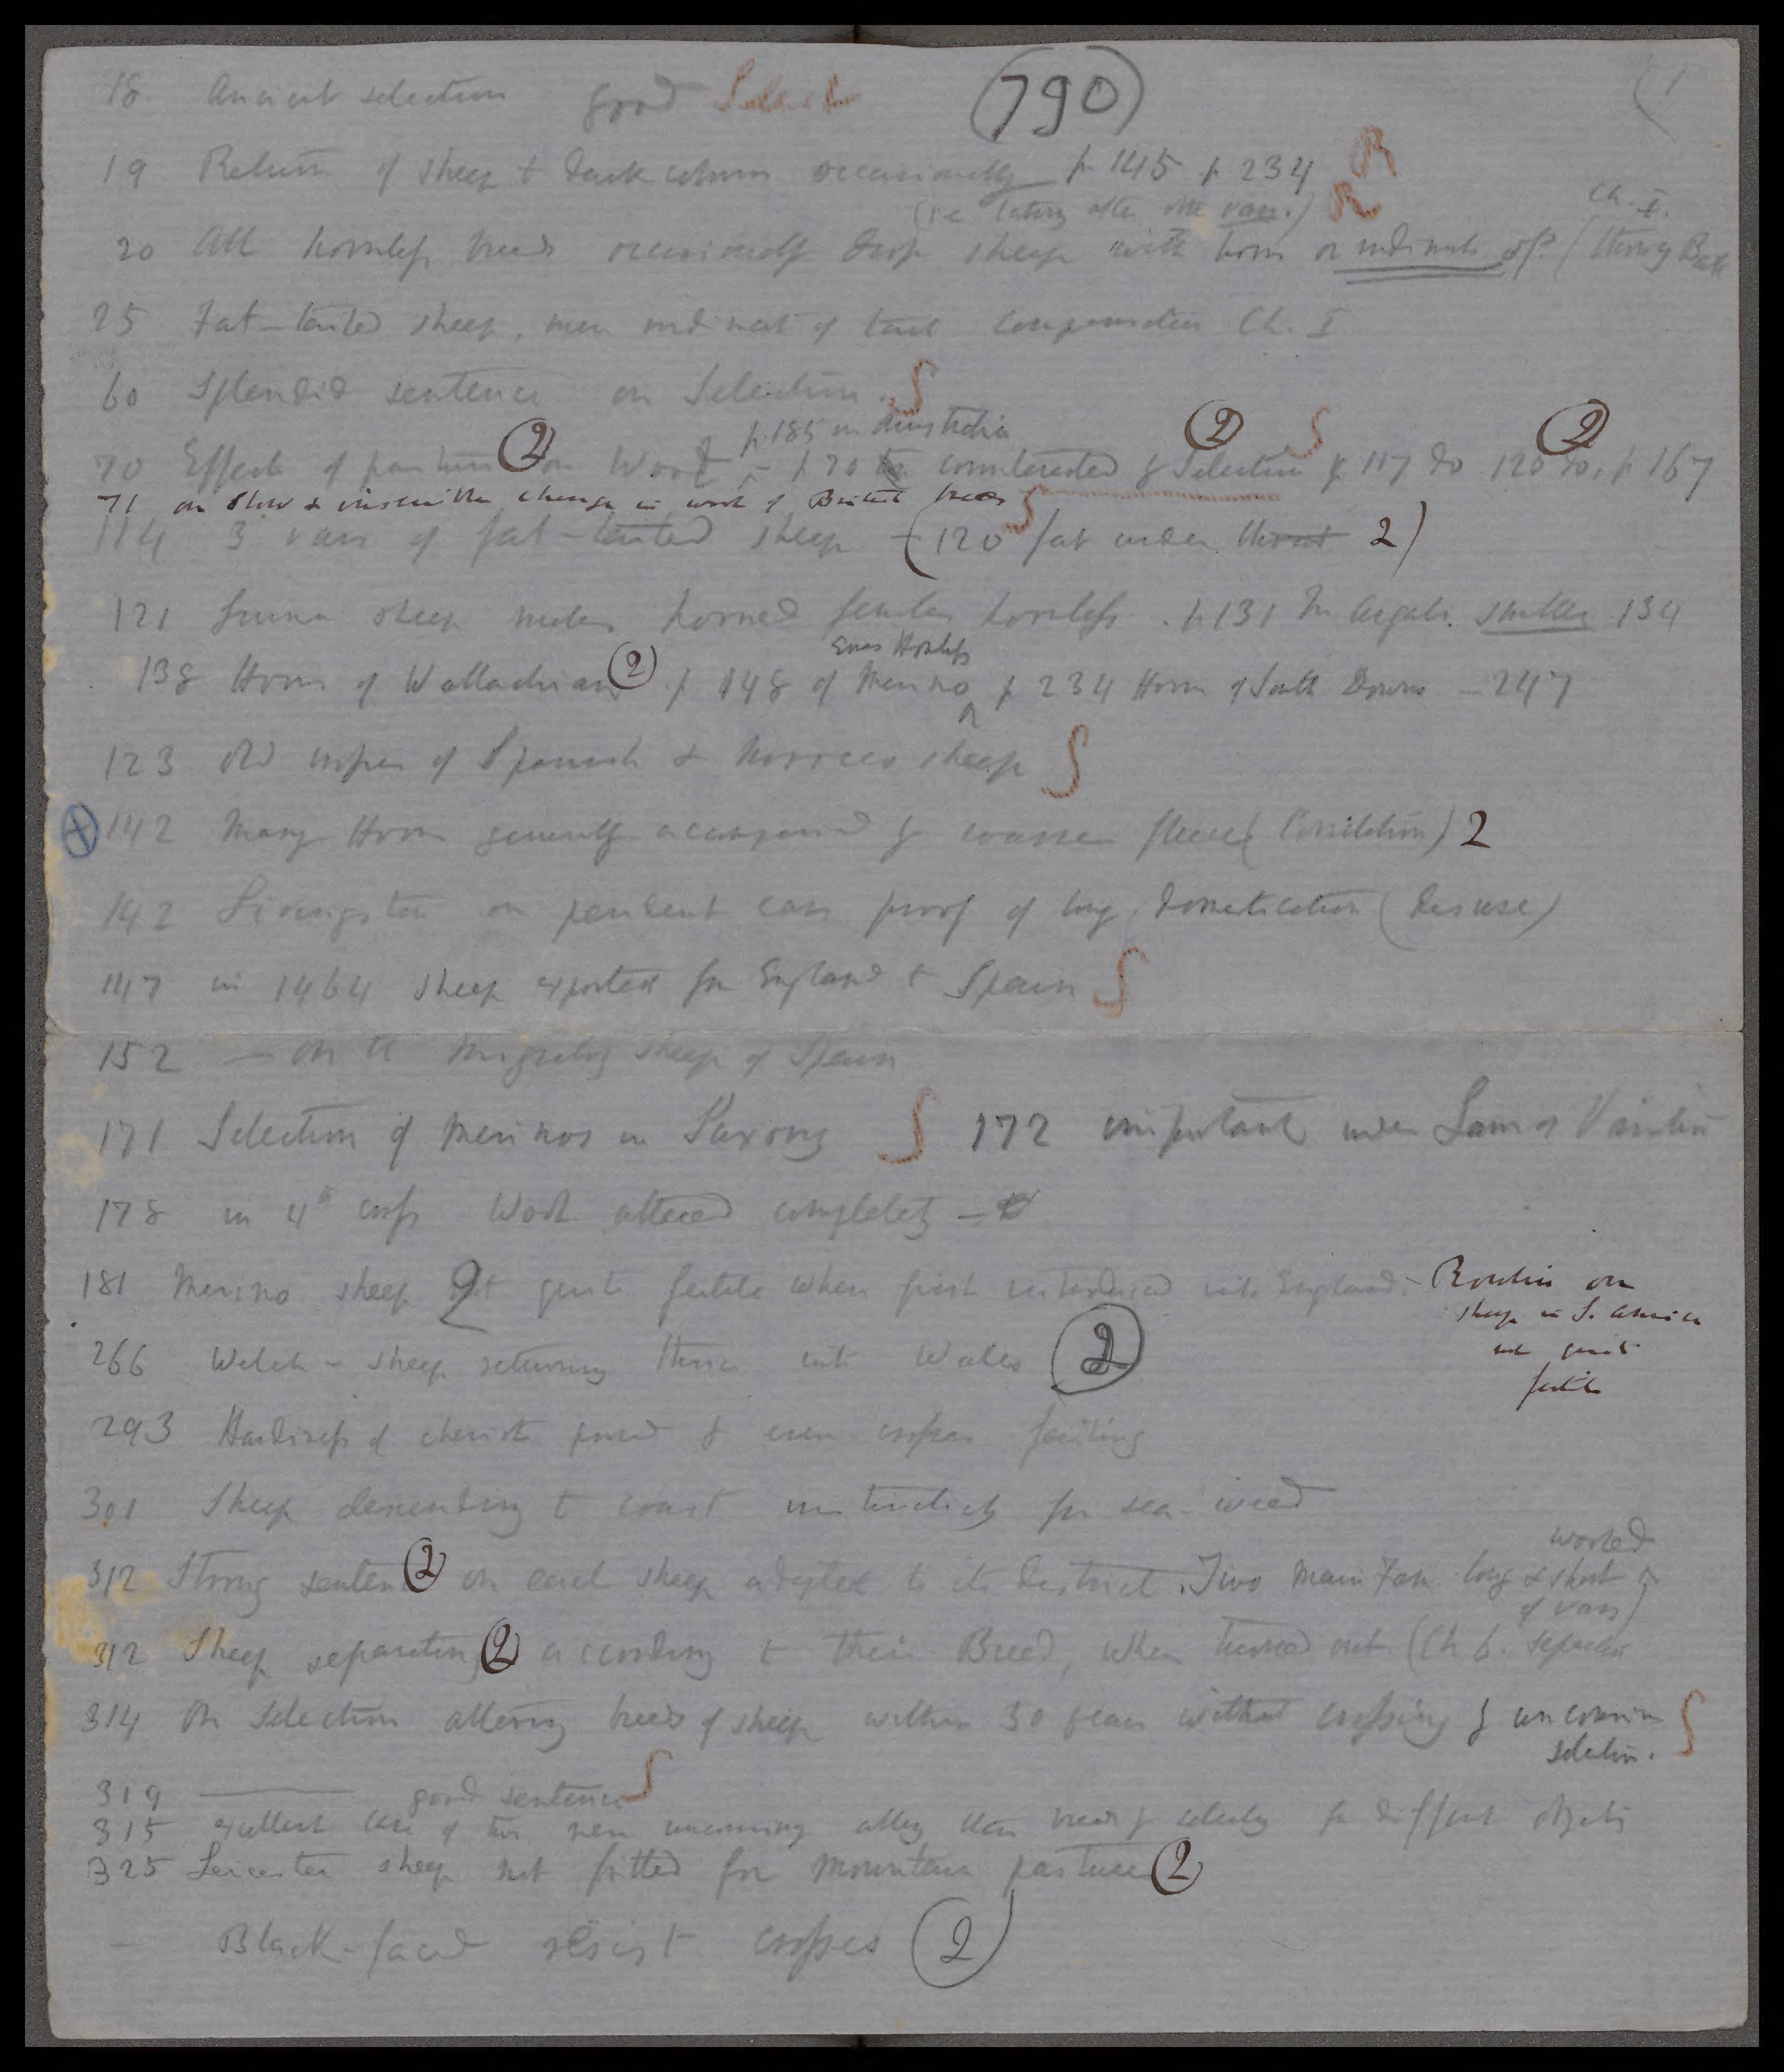 18 Ancient selection good Select (790) (1
19 Return of sheep to dark colours occasionally p 145 p 234 R
(i.e. taking after one var.) R Ch. I.
20 All hornless breeds occasionally drop sheep with horns or rudiments of? (Henry Bate
25 Fat-tailed sheep, mere rudiment of tail Compensation Ch. I
60 Splendid sentence on Selection. S
p. 185 in Australia
70 Effects of pasture (2) on Wool, - p 70 counteracted by Selection (2) S p 117 do 120 do. (2) p 167
71 on slow & insensible change in wool of British breeds S
114 3 vars of fat-tailed sheep - (120 fat under throat 2)
121 Guinea sheep males horned females hornless. p 131 In Argali. smaller 134
Ewes Hornless
138 Horns of Wallachian (2) p 148 of Merino p 234 Horns of South Downs - 247
123 Old crosses of Spanish & Morocco sheep S
142 Many Horns generally accompanied by coarse fleece (Correlation) 2
142 Livingston on pendent ears proof of long domestication (disuse)
147 in 1464 sheep exported from England to Spain S
152 — On the migrating sheep of Spain
171 Selection of Merinos in Saxony S 172 important under Laws of Variation
178 in 4th cross Wool altered completely —
181 Merino sheep not quite fertile when first introduced into England - Roulin on
sheep in S. America
not quite
fertile
266 Welch - sheep returning thence into Wales (2)
293 Hardiness of cheviots proved by even crosses failing
301 Sheep descending to coast instinctively for sea-weed
312 Strong sentence (2) on each sheep adapted to its district. Two main long & short wooled
of vars)
312 Sheep separating (2) according to their Breed, when turned out. (Ch 6. separation
314 On selection altering breeds of sheep within 30 years without crossing by unconscious S
selection.
319 ——— good sentence S
315 excellent case of two men unknowing altering their breeds by selecting for different objects
325 Leicester sheep not fitted for mountain pasture (2)
— Black-faced resist crosses (2)